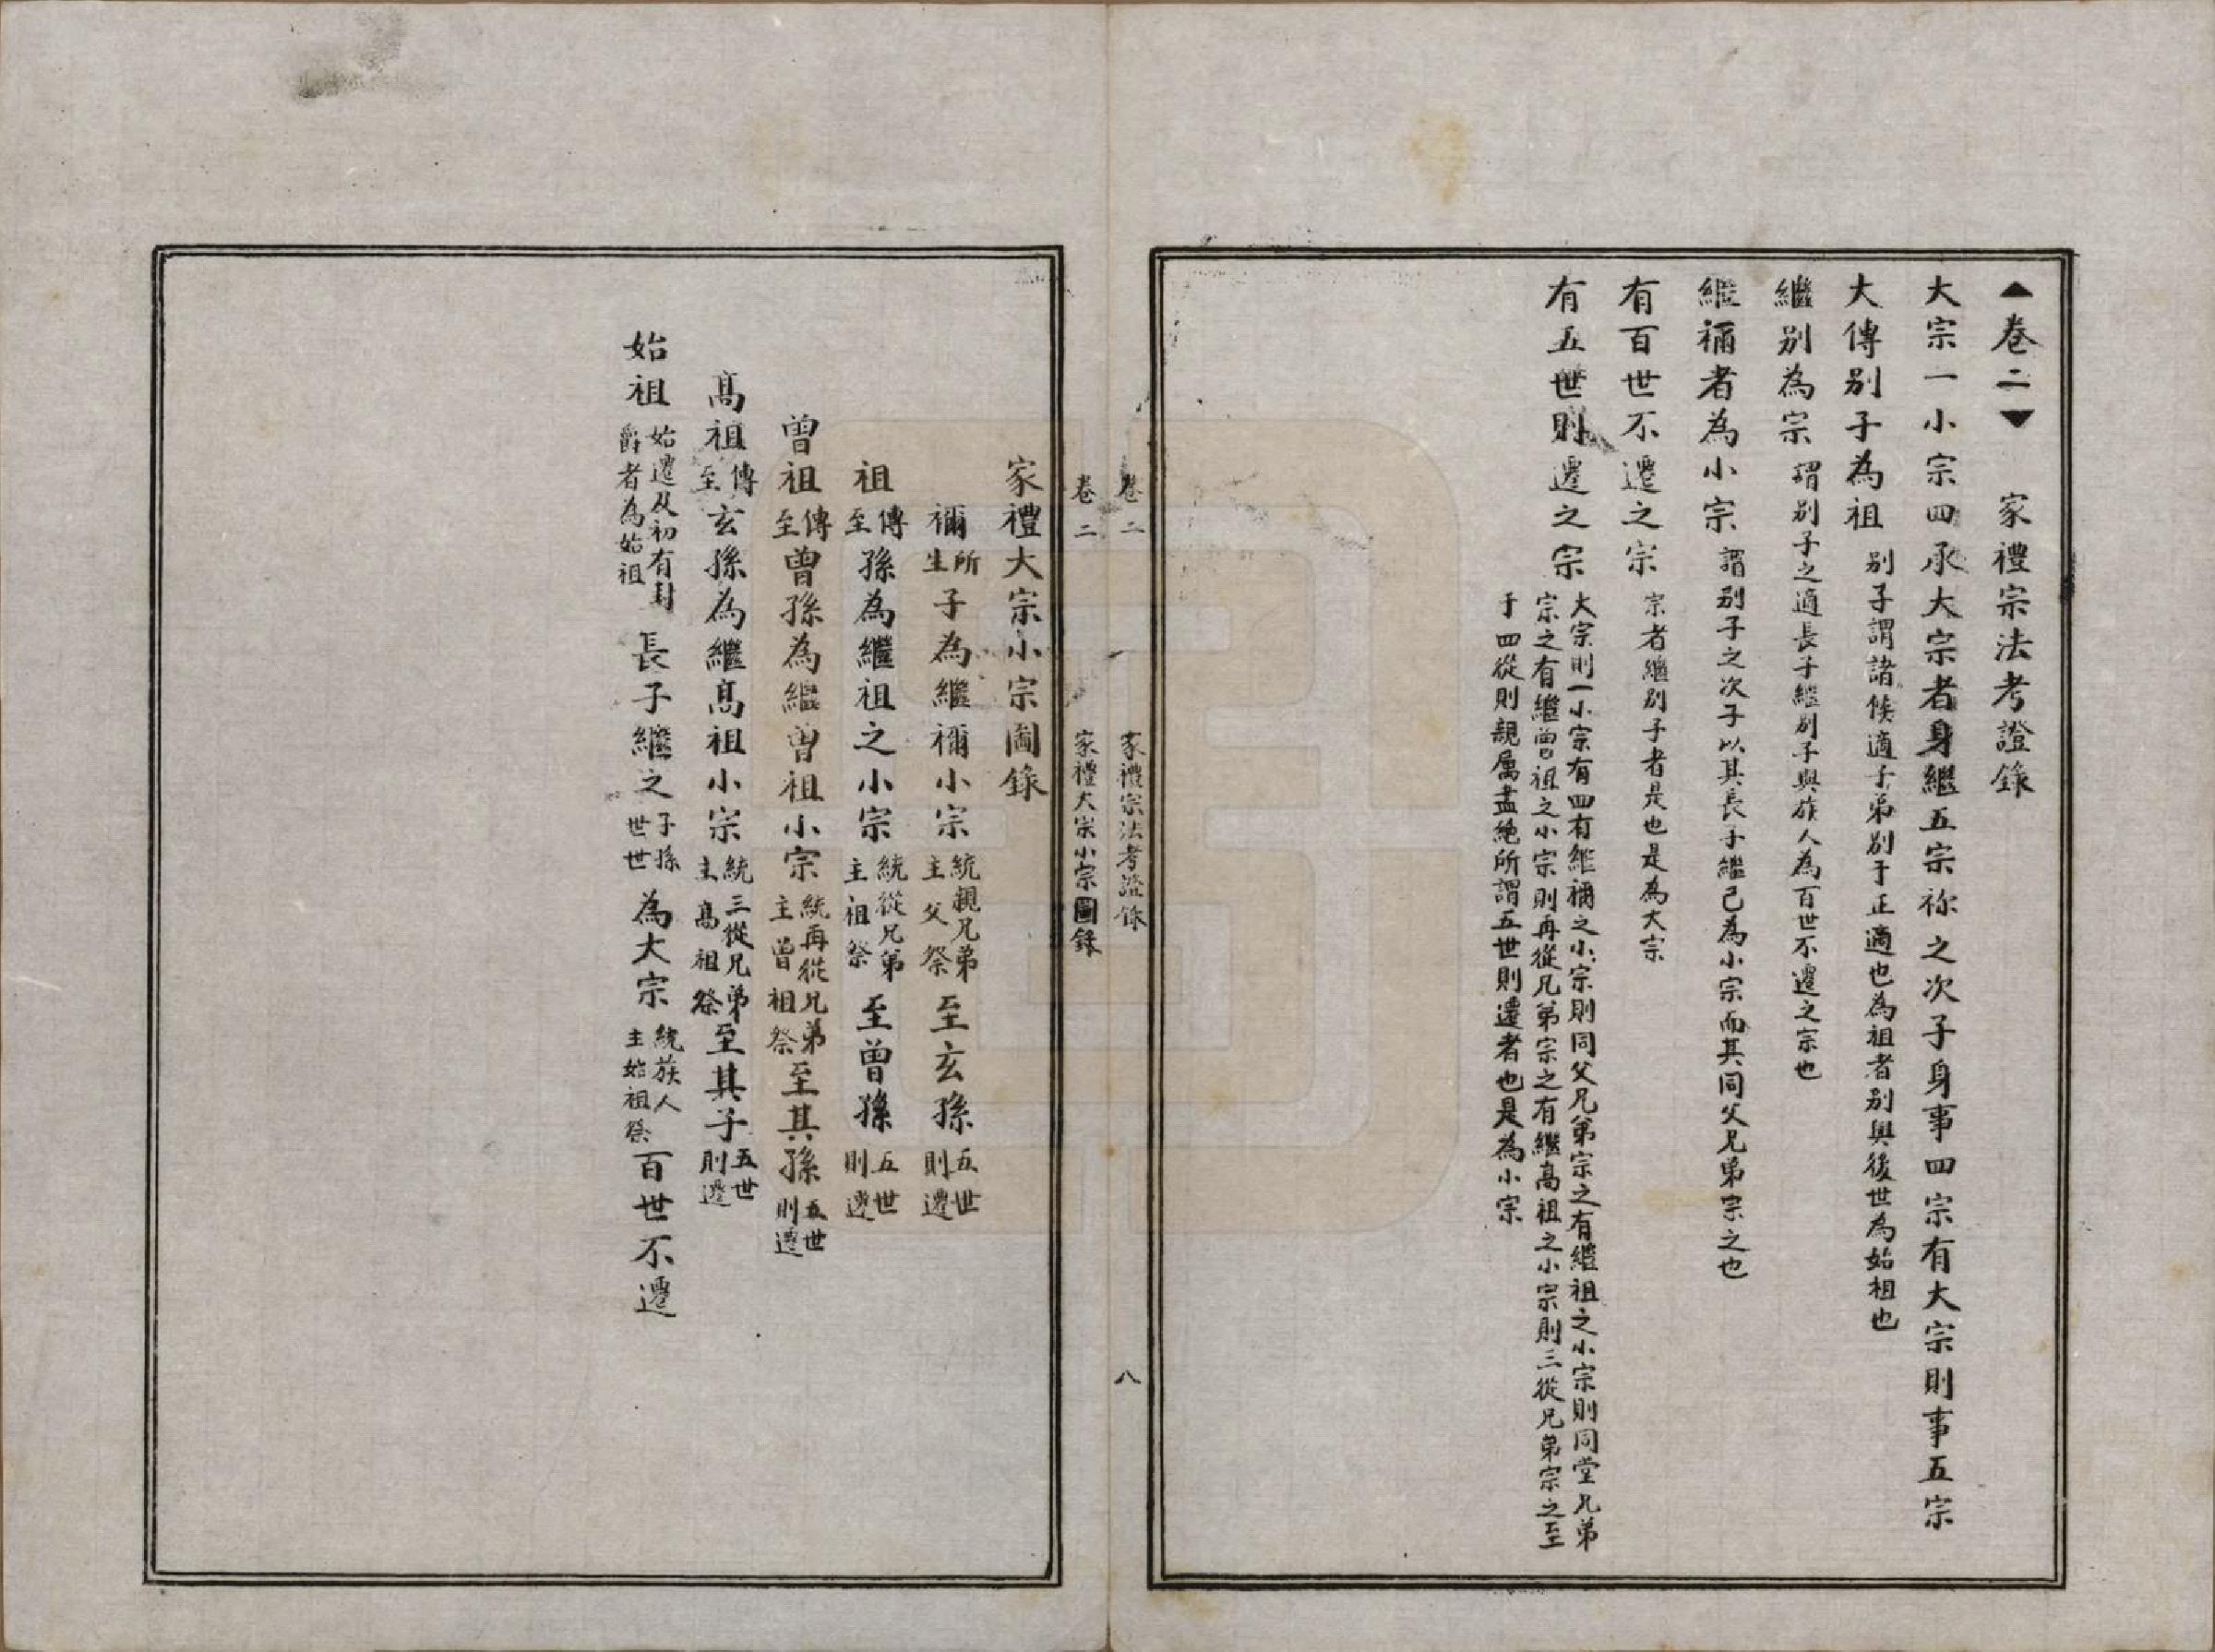 ▲卷二▼ 家禮宗法考證錄
大宗一小宗四承大宗者身繼五宗祢之次子身事四宗有大宗則事五宗
大傳别子為祖 别子謂諸侯適子弟别于正適也為祖者别與後世為始祖也
繼别為宗 謂别子之適長子繼别子與族人為百世不遷之宗也
繼禰者為小宗 謂别子之次子以其長子繼己為小宗而其同父兄弟宗之也
有百世不遷之宗 宗者繼别子者是也是為大宗
有五世則遷之宗 大宗則一小宗有四有繼禰之小宗則同父兄弟宗之有繼祖之小宗則同堂兄弟
宗之有繼曾祖之小宗則再從兄弟宗之有繼高祖之小宗則三從兄弟宗之至
于四從則親属盡絕所謂五世則遷者也是為小宗
卷二 家禮宗法考證錄 八
卷二 家禮大宗小宗圖錄
家禮大宗小宗圖錄
禰所生子為繼禰小宗統親兄弟主父祭至玄孫五世則遷
祖傳至孫為繼祖之小宗統從兄弟主祖祭至曾孫五世則遷
曾祖傳至曾孫為繼曾祖小宗統再從兄弟主曾祖祭至其孫五世則遷
髙祖傳至玄孫為繼髙祖小宗統三從兄弟主髙祖祭至其子五世則遷
始祖始遷及初有封爵者為始祖長子繼之子孫世世為大宗統族人主始祖祭百世不遷